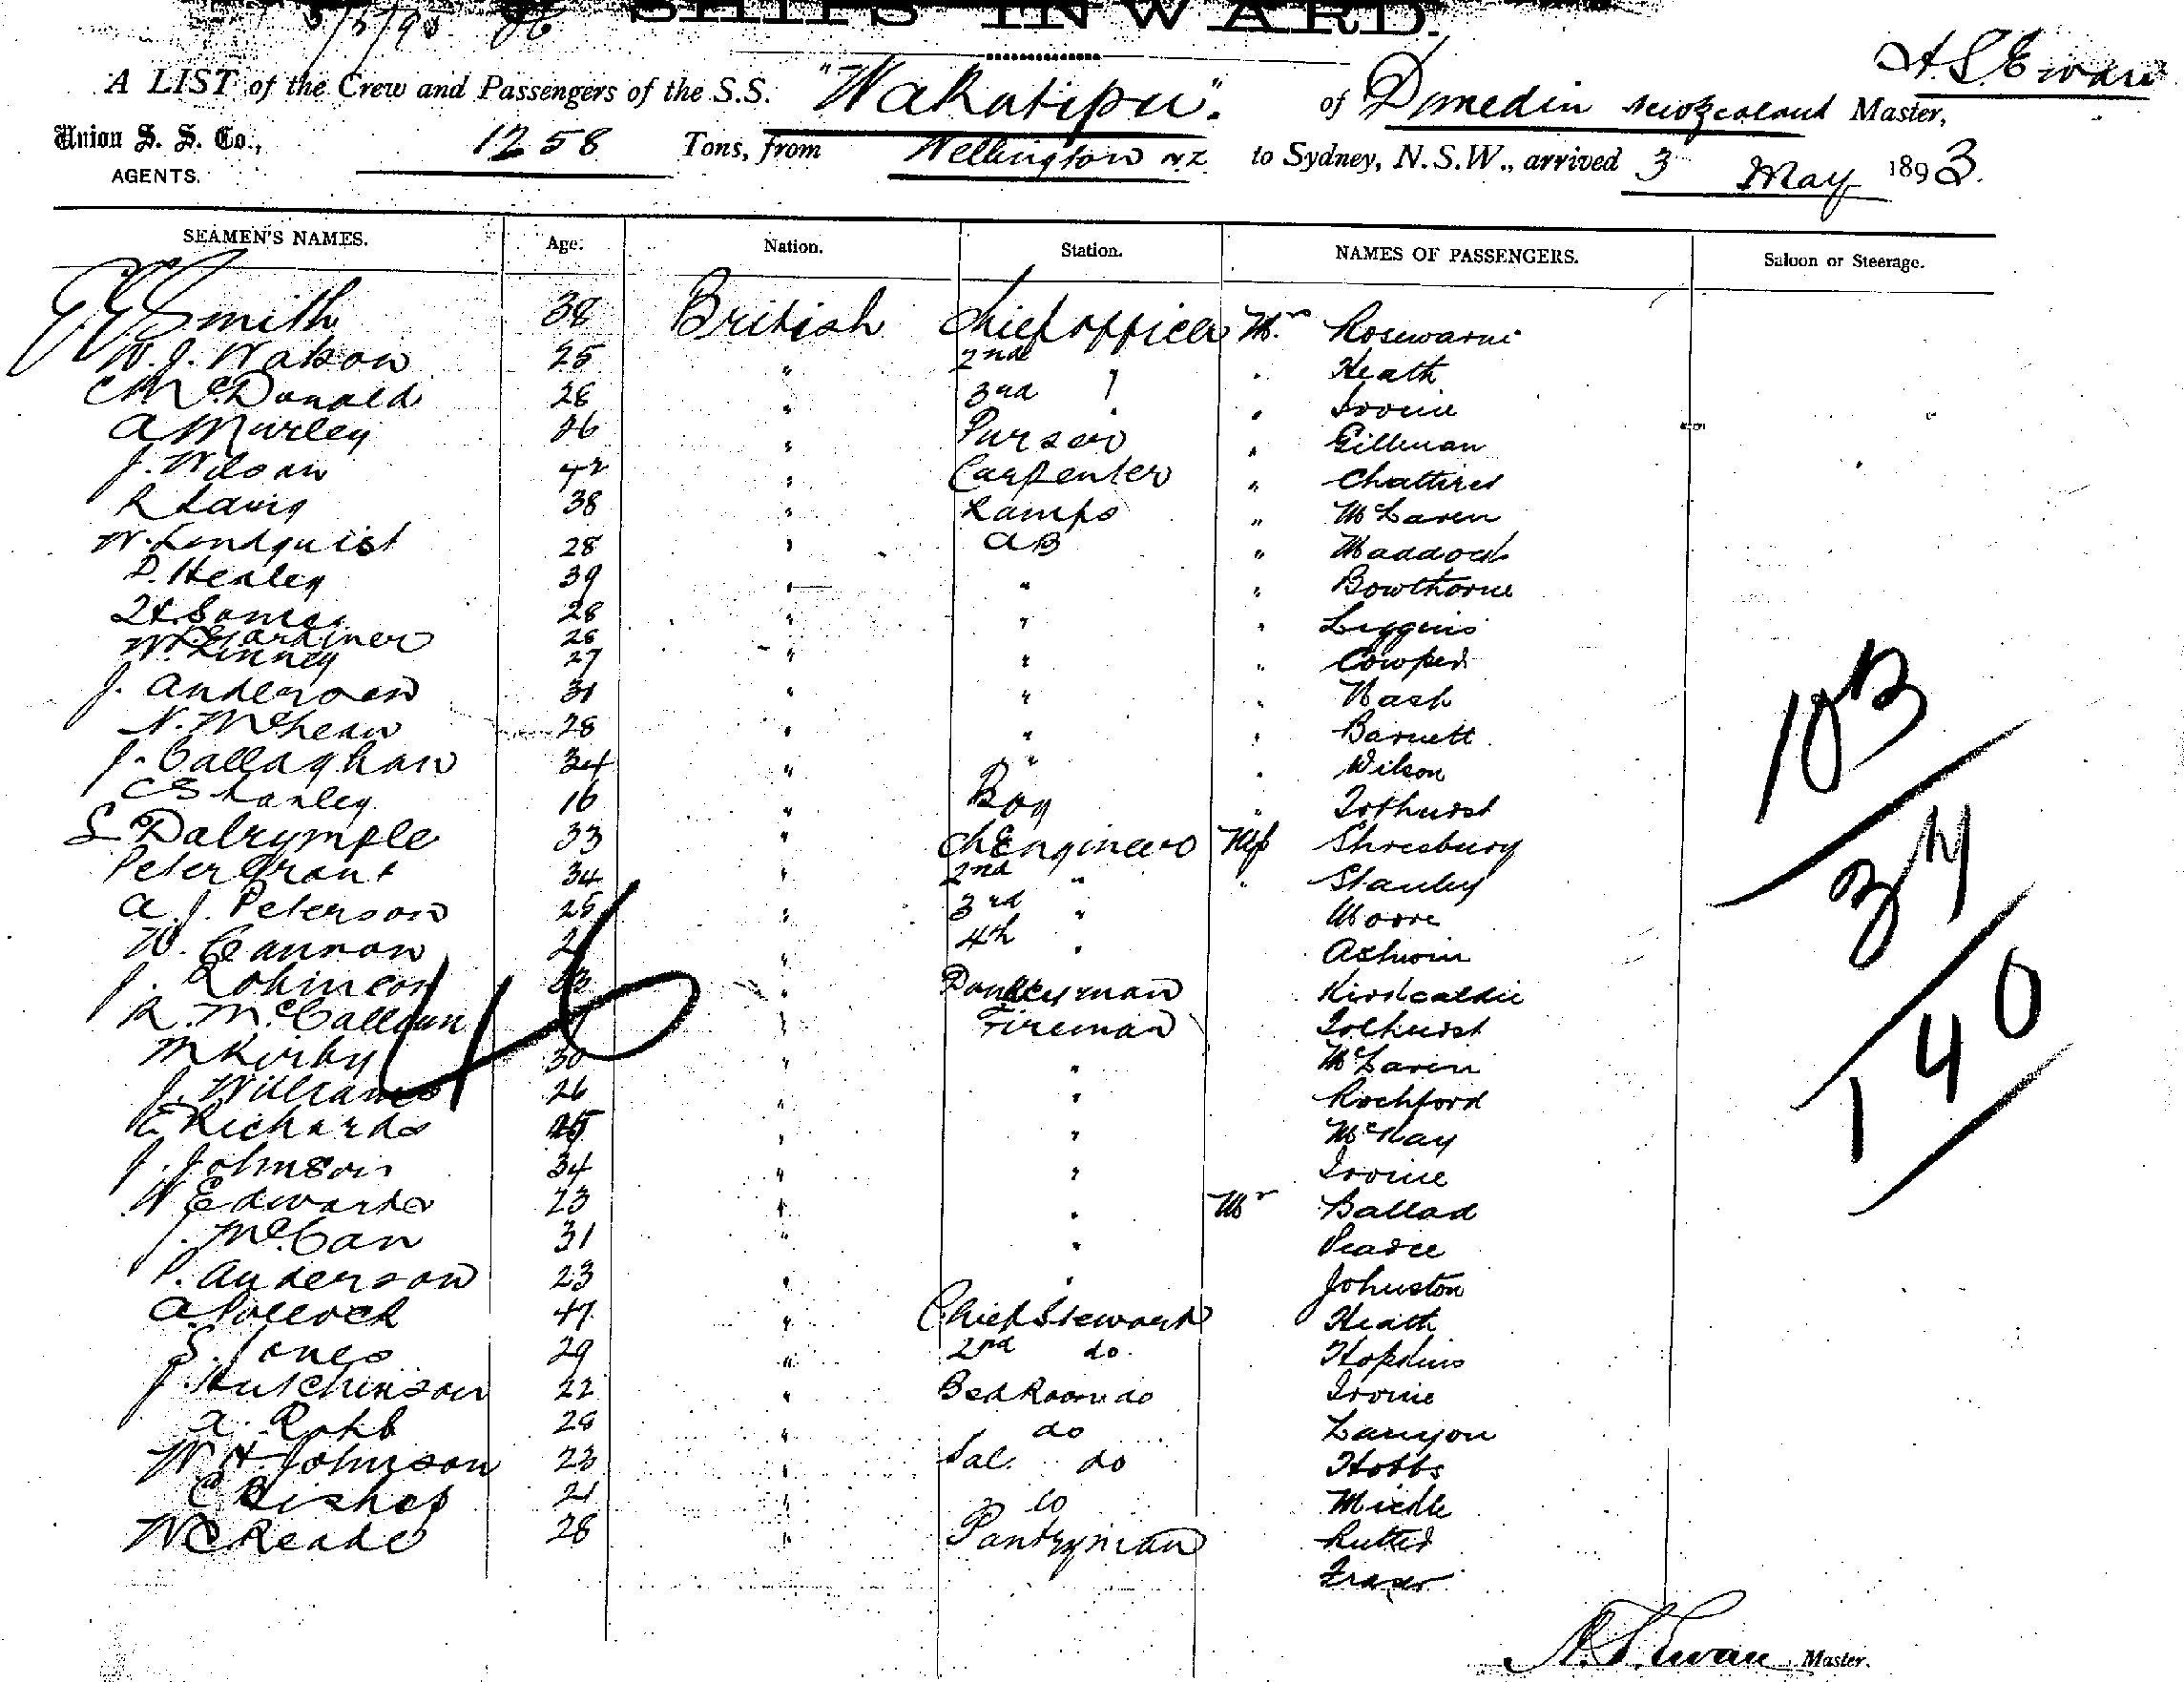 5/5/93 86
SHIPS INWARD.
A LIST of the Crew and Passengers of the S.S. "Wakatipu". of Dunedin New Zealand Master,
Union S. S. Co., 1258 Tons, from Wellington NZ to Sydney, N.S.W., arrived 3 May 1893.
AGENTS.
SEAMEN'S NAMES. Age. Nation. Station. NAMES OF PASSENGERS. Saloon or Steerage.
Smith 38 British Chief officer Mr
W. J. Watson 25 " 2nd " Heath
C McDonald 28 " 3rd " Irvine
A Murley " Purser " Gillman
J. Wilson 42 " Carpenter "
R Laing 38 " Lamps " McLaren
W. Lindquist 28 " AB " Maddock
D. Healey 39 " " " Bowthorne
28 " " " Liggins
W. Gardiner 28
W. Kinney 27 " " " Cowper
J. Anderson 31 " " " Nash
N. McLean 28 " " " Barnett
J. Callaghan 34 " " " Wilson
C Stanley 16 " Boy " Tolhurst
Dalrymple 33 " Ch Engineer Shresbury
Peter Grant 34 " 2nd " " Stanley
A. J. Peterson 25 " 3rd " Moore
W. Cannon " 4th " Ashwin
J. Robinson 33 " Donkeyman Kirkcaldie
R. McCallum " Fireman Tolhurst
M Kirby 30 " " McLaren
J. Williams 26 " " Rochford
E Richards 25 " " McKay
J. Johnson 34 " " Irvine
W Edwards 23 " " Mr Ballad
J. McCan 31 " " Pearce
P. Anderson 23 " " Johnston
A. Pollock 47 " Chief Steward Heath
S. Jones 29 " 2nd do Hopkins
J. Hutchinson 22 " Bed Room do Irvine
A. Robb 28 " do Lanyon
W H Johnson 23 " Sal. do Hobbs
C Bishop 21 " do
W C Reade 28 " Pantryman Rutter
Fraser
46
103
34
140
Master.